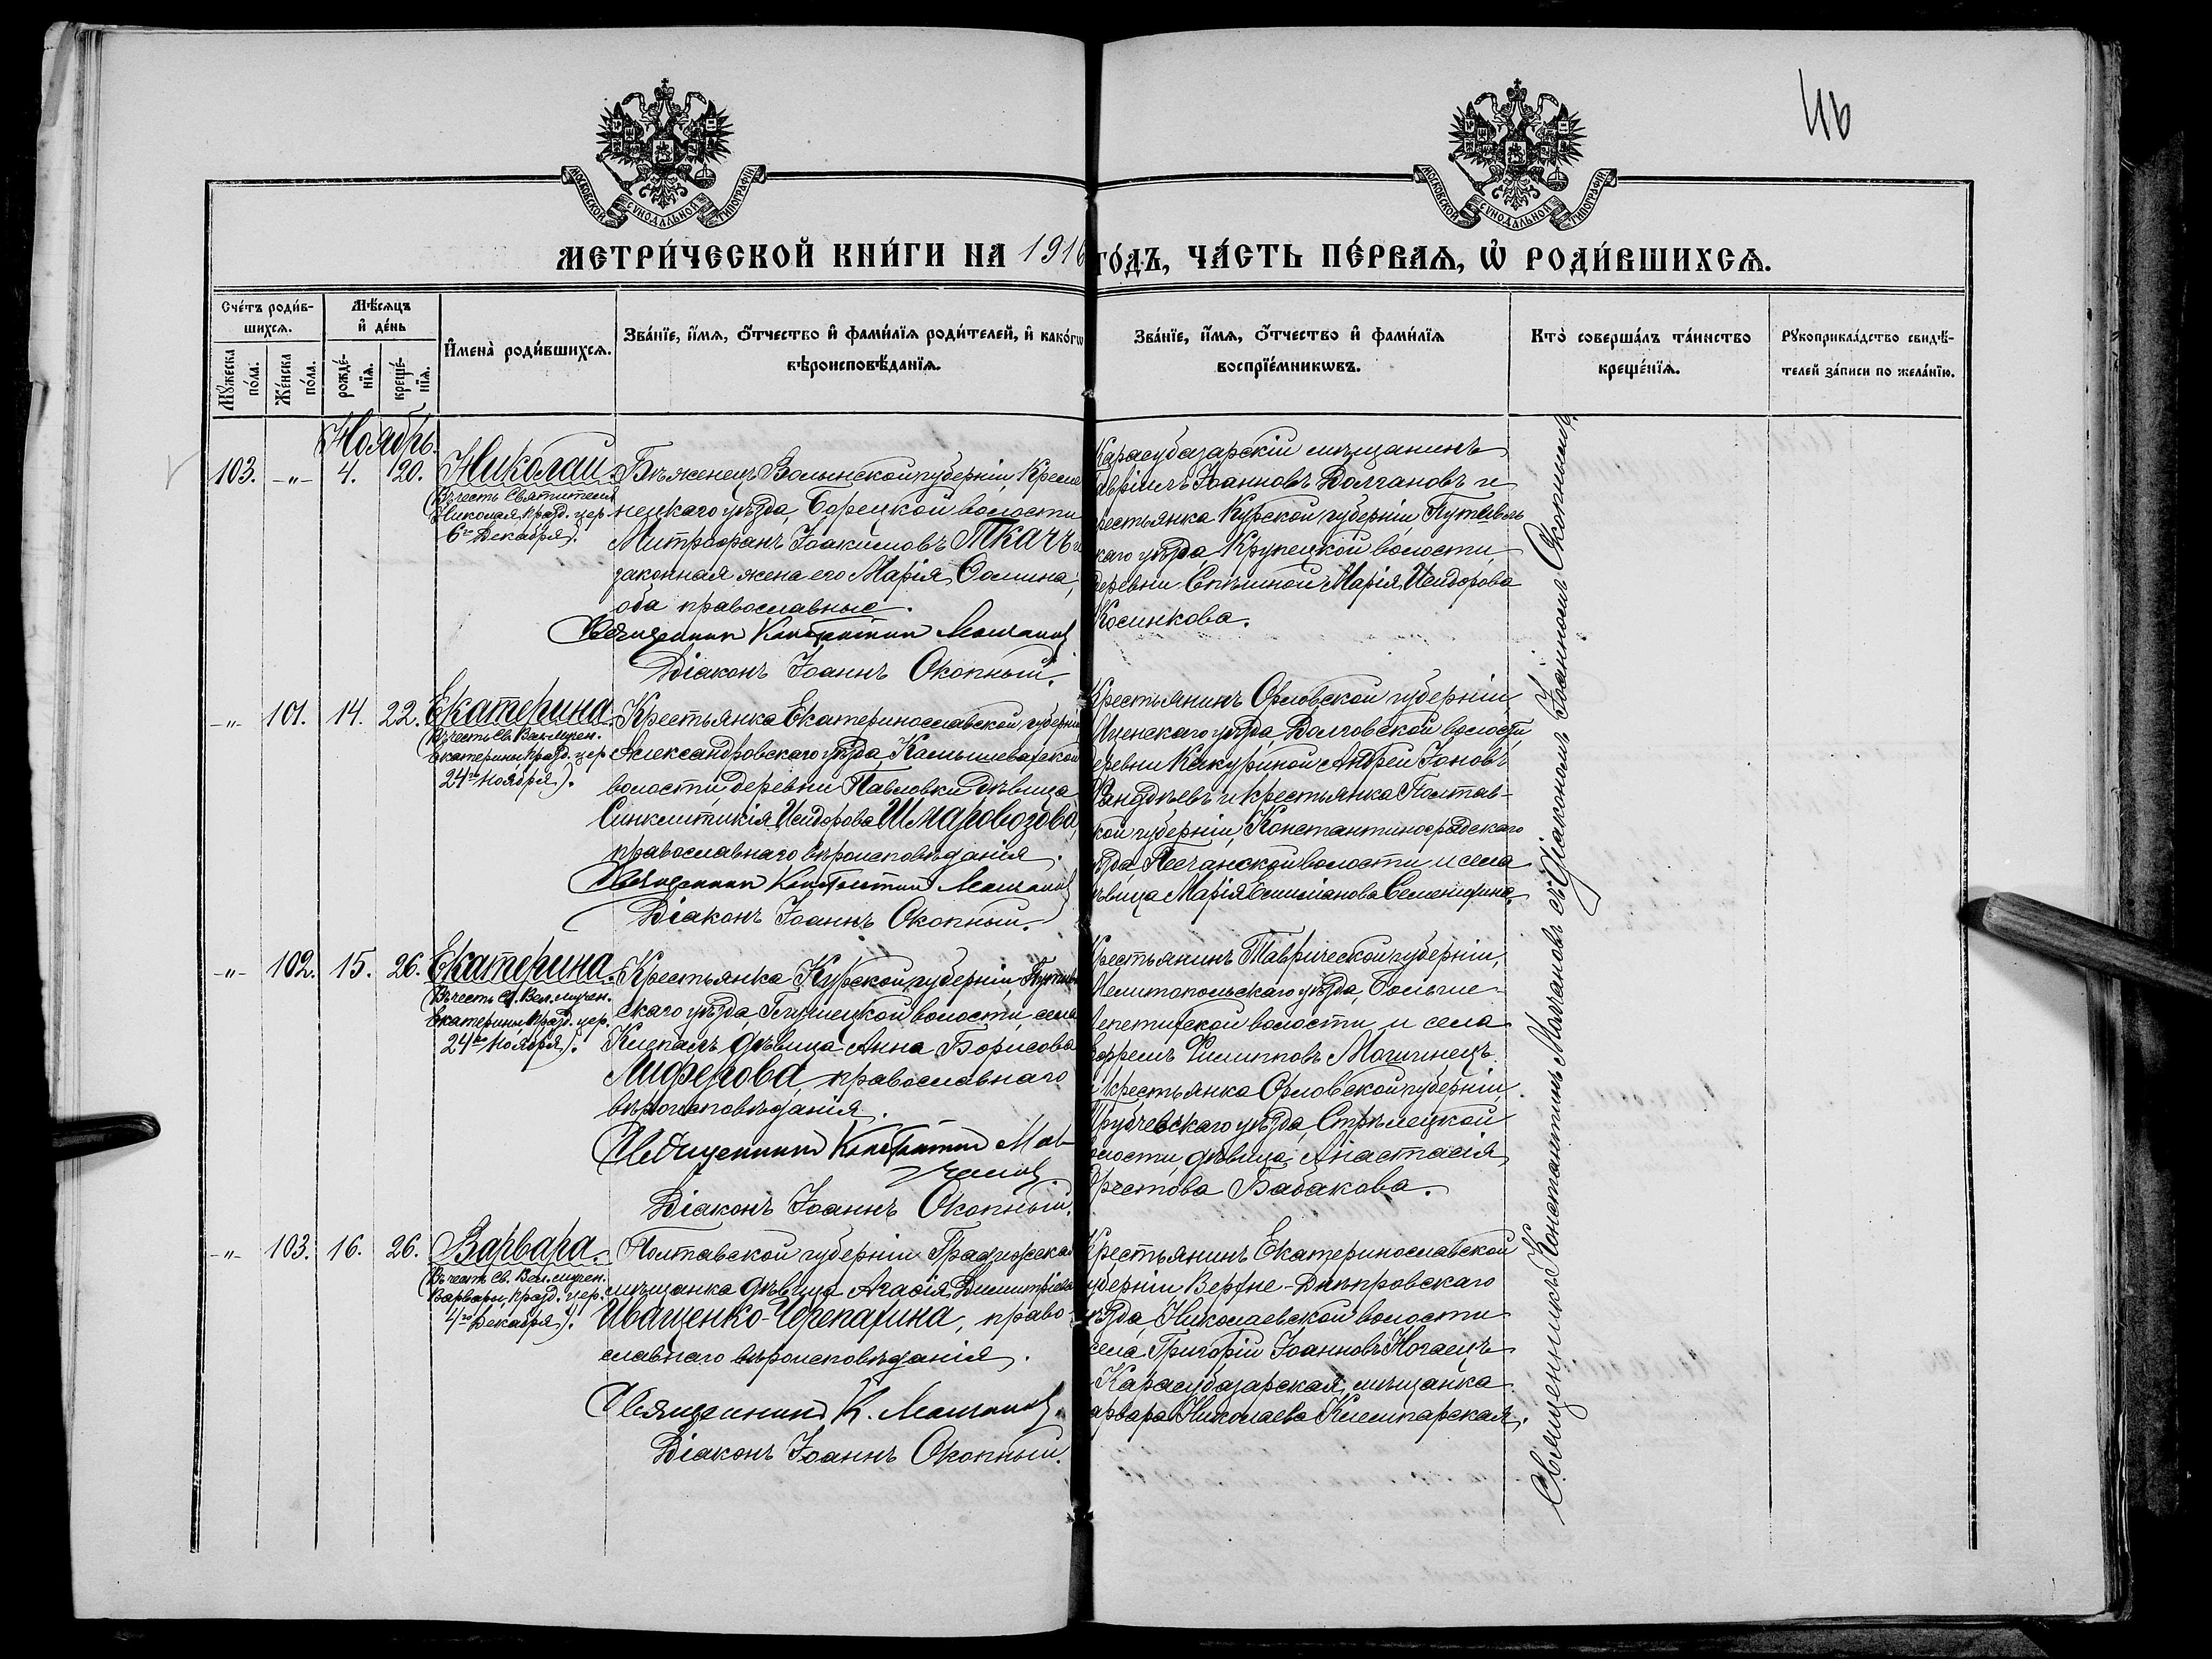 46
МОСКОВСКОЙ СѴНОДАЛЬНОЙ ТИПОГРАФІИ
МОСКОВСКОЙ СѴНОДАЛЬНОЙ ТИПОГРАФІИ
МЕТРИ́ЧЕСКОЙ КНИ́ГИ НА 1916 ГО́ДЪ, ЧА́СТЬ ПЕ́РВАѦ, Ѡ҆ РОДИ́ВШИХСѦ.
Сче́тъ роди́в-
шихсѧ.
Мꙋ́жеска по́ла.
Же́нска по́ла.
Мѣ́сѧцъ
и҆ де́нь
рожде́-нїѧ.
креще́-нїѧ.
И҆мена̀ роди́вшихсѧ.
Зва́нїе, и҆́мѧ, ѻ҆́тчество и҆ фами́лїѧ роди́телей, и҆ како́гѡ
вѣроисповѣ́данїѧ.
Зва́нїе, и҆́мѧ, ѻ҆́тчество и҆ фами́лїѧ
воспрїе́мникѡвъ.
Кто̀ соверша́лъ та́инство
креще́нїѧ.
Рꙋкоприкла́дство свидѣ́-
телей за́писи по жела́нїю.
Ноябрь.
103. -"- 4. 20. Николай
(Въ честь Святителя
Николая, празд. цер.
6го Декабря).
Бѣженецъ Волынской губерніи, Креме
нецкаго уѣзда, Борецкой волости
Митрофанъ Іоакимовъ Ткачъ и
законная жена его Марія Ѳомина,
оба православные.
Священникъ Константинъ Молчановъ
Діаконъ Іоаннъ Окопный.
Карасубазарскій мѣщанинъ
авріилъ Іоанновъ Долгановъ и
рестьянка Курской губерніи, Путивль
скаго уѣзда, Крупецкой волости,
деревни Марія Исидорова
Косинкова.
-"- 101. 14. 22. Екатерина
(Въ честь Св. Вел. мучен.
Екатерины, празд. цер.
24го Ноября).
Крестьянка Екатеринославской губерніи
Александровскаго уѣзда, Камышеватской
волости, деревни Павловки дѣвица
Синклитикія Исидорова Шмаровозова,
православнаго вѣроисповѣданія.
Священникъ Константинъ Молчановъ
Діаконъ Іоаннъ Окопный.
Крестьянинъ Орловской губерніи
Мценскаго уѣзда, Долговской волости,
деревни Какуриной Андрей Іоновъ
и крестьянка Полтав-
ской губерніи, Константиноградскаго
уѣзда, Песчанской волости и села
дѣвица Марія Емиліанова Семенихина.
-"- 102. 15. 26. Екатерина.
(Въ честь Св. Вел. мучен.
Екатерины празд. цер.
24го Ноября).
Крестьянка Курской губерніи, Путивль
скаго уѣзда, Глушецкой волости, села
Клепалъ дѣвица Анна Борисова
Лиферова, православнаго
вѣроисповѣданія.
Священникъ Константинъ Мол-
чановъ
Діаконъ Іоаннъ Окопный.
Крестьянинъ Таврической губерніи,
Мелитопольскаго уѣзда, Больше-
Лепетихской волости и села
Ефремъ Филипповъ Могилнецъ
и крестьянка Орловской губерніи,
Трубчевскаго уѣзда, Стрѣлецкой
волости, дѣвица Анастасія
Орестова Бабакова.
-"- 103. 16. 26. Варвара.
(Въ честь Св. Вел. мучен.
Варвары, празд. цер.
4го Декабря).
Полтавской губерніи Градижская
мѣщанка дѣвица Агаѳія Димитріева
Иващенко-Черепахина, право-
славнаго вѣроисповѣданія.
Священникъ К. Молчановъ.
Діаконъ Іоаннъ Окопный.
Крестьянинъ Екатеринославской
губерніи Верхне-Днѣпровскаго
уѣзда, Николаевской волости
села Григорій Іоанновъ Ногаецъ
Карасубазарская мѣщанка
арвара Николаева
Священникъ Константинъ Молчановъ съ Діакономъ Іоанномъ Окопнымъ.